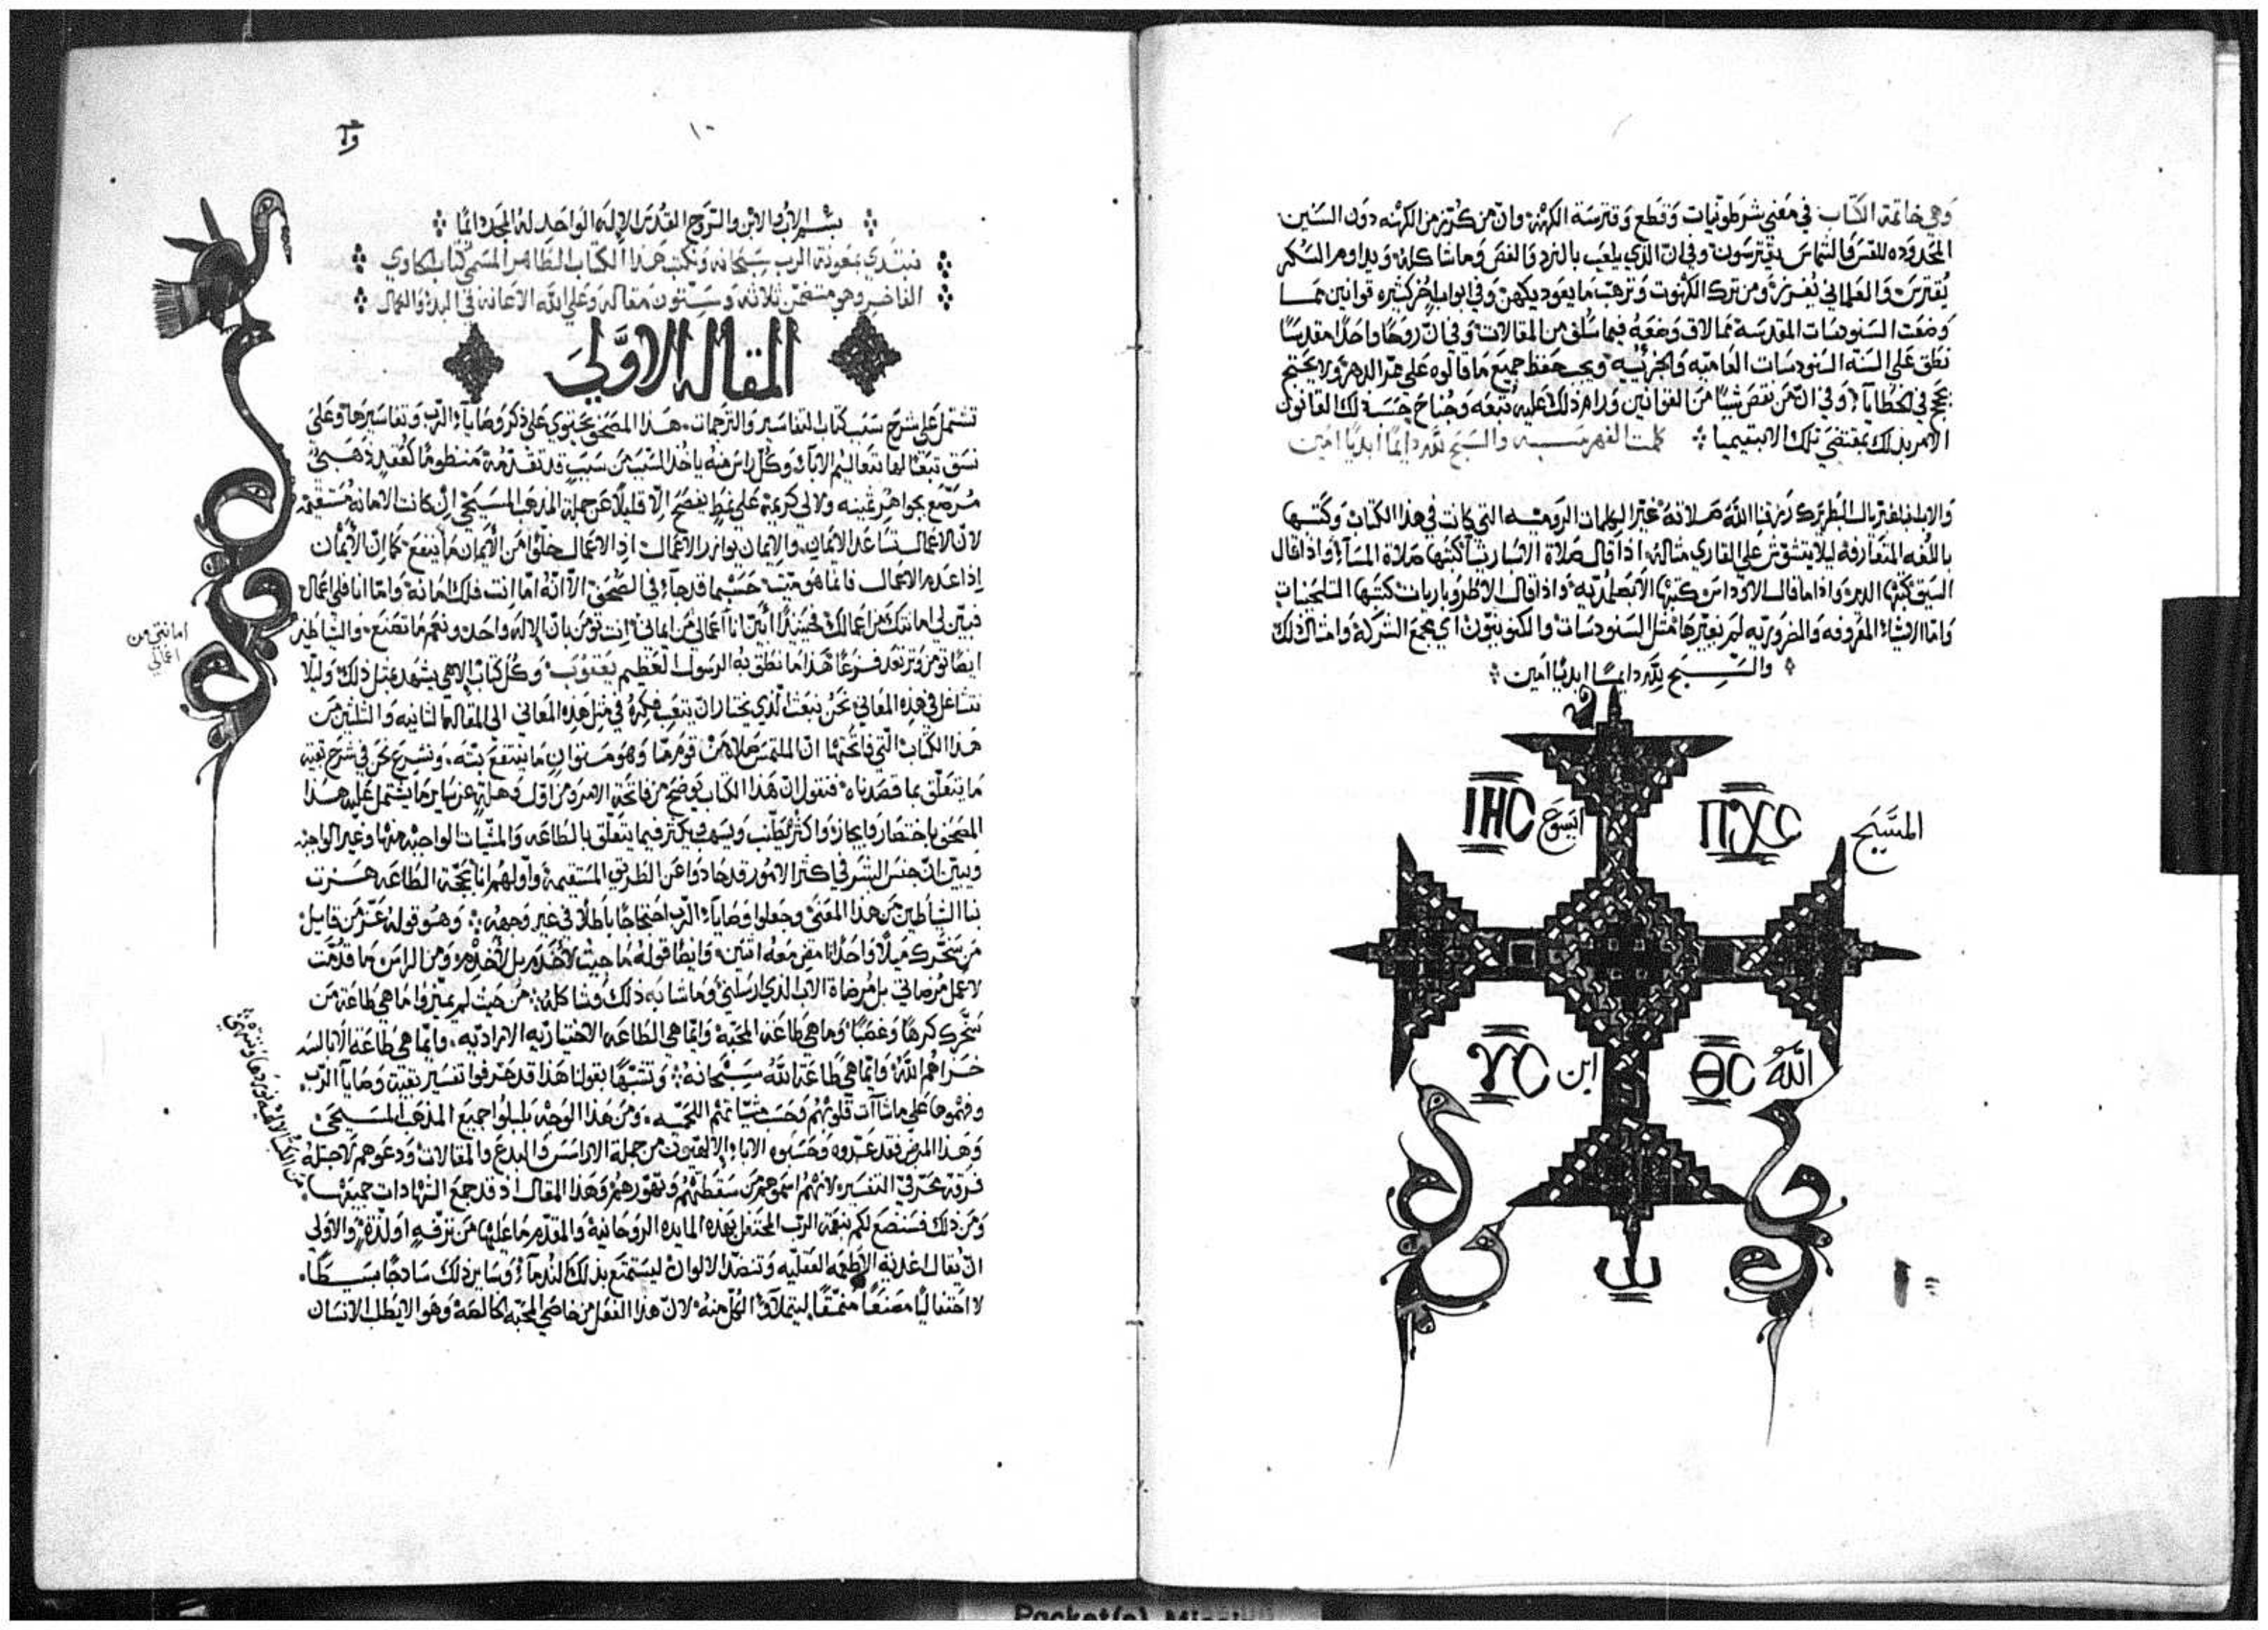 وهي خاتمة الكتاب في معني شرطونيات وقطع وقترسة الكهنة وان من كُرّز من الكهنه دون السنين
المحدوده للقس والشماس يقترسون وفي ان الذي يلعب بالنرد والفص وما شاكله ويداوم السكر
يُقترس والعلماني يُفرز ومن ترك الكهنوت وترهب ما يعود يكهن وفي ابواب اخر كثيره قوانين مما
وضعت السنودسات المقدسة مما لاق وضعه فيما سلف من المقالات وفي ان روحًا واحدًا مقدسًا
نطق علي السنة السنودسات العاميه والجزئيه ويجب حفظ جميع ما قالوه علي ممر الدهر ولا يحتج
بحجج في الخطايا وفي ان من نقص شيًا من القوانين ورام ذلك عليه تبعه وجناح حسب ذلك القانون
الامر بذلك بمقتضي تلك الابتيميا كملت الفهرسه والسبح لله دايمًا ابديًا امين
والاب المغتبط البطريرك رزقنا الله صلاته غيّر الكلمات الروميه التي كانت في هذا الكتاب وكتبها
باللغه المتعارفه ليلا يتشوش علي القاري مثاله اذا قال صلاة الاسبارينا كتبها صلاة المسآ واذا قال
السيق كتبها الدير واذا ما قال الاوداس كتبها واذا قال كتبها
واما الاشيآ المعروفه والضروريه لم نغيرها مثل السنودسات والكنوبيون اي مجمع الشركة وامثال ذلك
والسبح لله دايمًا ابديًا امين
ІНС ايسوع ПХС المسيح
ΥС ابن ΘС الله
١٠
بسم الاب والابن والروح القدس الاله الواحد له المجد دايمًا
نبتدي بمعونة الرب سبحانه ونكتب هذا الكتاب الطاهر المسمي كتاب الحاوي
الفاخر وهو متضمن ثلاثه وستون مقاله وعلي الله الاعانه في البدو والكمال
المقاله الاوّلي
تشتمل علي شرح سبب كتاب التفاسير والترجمات هذا المصحف يحتوي علي ذكر وصايا الرب وتفاسيرها وعلي
نسق تبعًا لها تعاليم الابآ وكل راس منه ياخذ السبب من سبب قد تقدمه منظومًا كعقد ذهبي
مُرصّع بجواهر ثمينه ولالي كريمة علي نمط يفصح الا قليلًا عن جملة المذهب المسيحي ان كانت الامانة مستقيمة
لان الاعمال تساعد الايمان والايمان يوازر الاعمال اذ الاعمال خلوًا من الايمان ما ينفع كما ان الايمان
اذا عدم الاعمال فانما هو ميت حسبما قد جآ في الصحف الا انه اما انت فلك امانة واما انا فلي اعمال
فبيّن لي امانتك من اعمالك فحينئذ ابين انا اعمالي من ايماني انت تومن بان الاله واحد ونعم ما تصنع والشياطين
ايضًا تومن وترتعد فزعًا هذا ما نطق به الرسول العظيم يعقوب وكل كتاب الاهي يشهد بمثل ذلك وليلا
نتشاغل في هذه المعاني نحن نبعث الذي يختار ان يتعب فكره في مثل هذه المعاني الي المقالة الثانيه والثلثين من
هذا الكتاب التي فاتحتها ان الملتمس صلاة من قوم ما وهو متوانٍ ما ينتفع بتّه ونشرع نحن في شرح بقية
ما يتعلق بما قصدناه فنقول ان هذا الكتاب يوضح من فاتحة الامر ومن اول وهلة عن ساير ما يشتمل عليه هذا
المصحف باختصار وايجاز واكثر يطنب ويسهب يكثر فيما يتعلق بالطاعه والمشيات الواجبه منها وغير الواجبه
ويبين ان جنس البشر في اكثر الامور قد حادوا عن الطريق المستقيمة واولهم انا بحجة الطاعه هزت
بنا الشياطين من هذا المعني وجعلوا وصايا الرب احتجاجًا باطلًا في غير وجهه وهو قوله عز من قايل
من سخرك ميلًا واحدًا امضِ معه اثنين وايضًا قوله ما جيت لاُخدم بل لاَخدم ومن الراس ما قدمت
لاعمل مرضاتي بل مرضاة الاب الذي ارسلني وما شابه ذلك وشاكله من حيث لم يميزوا ما هي طاعة من
سخرك كرهًا وغصبًا وما هي طاعة المحبة وانما هي الطاعه الاختياريه الاراديه وانما هي طاعة الابالسه
خزاهم الله وانما هي طاعة الله سبحانه وتشبهًا بقولنا هذا قد حرفوا تفسير بقية وصايا الرب
وفهموها علي ما شآت قلوبهم وحسب مشياتهم اللحميه ومن هذا الوجه بلبلوا جميع المذهب المسيحي
وهذا المرض فقد عدّوه وحسبوه الابآ الالهيون من جملة الاراسس والبدع والمقالات ودعوهم لاجله
فرقة محرفي التفسير لانهم اسموهم من سقطتهم وتهورهم وهذا المقال اذ قد جمع الشهادات جميعها
ومن ذلك فسنضع لكم بنعمة الرب المحتفل بهذه المايده الروحانية والمقدم ما عليها من ترفه او لذة والاولي
ان يقال اغذية الاطعمه العقليه وتنضد الالوان ليستمتع بذلك الندمآ وساير ذلك ساذجًا بسيطًا
لا احتفاليًا مصنعًا منمقًا ليتملا الكل منه لان هذا الفعل من خاصّي المحبه الخالصة وهو الا يطلب الانسان
امانتي من
اعمالي